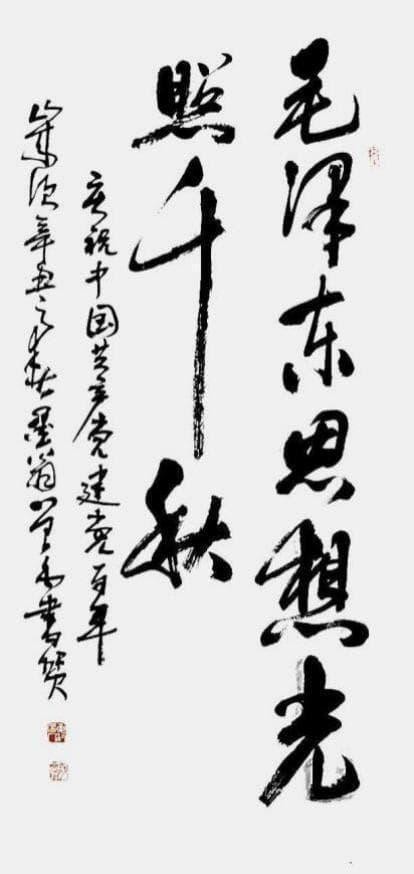 毛泽东思想光
照千秋
庆祝中国共产党建党百年
岁次辛丑之秋墨翁书赞